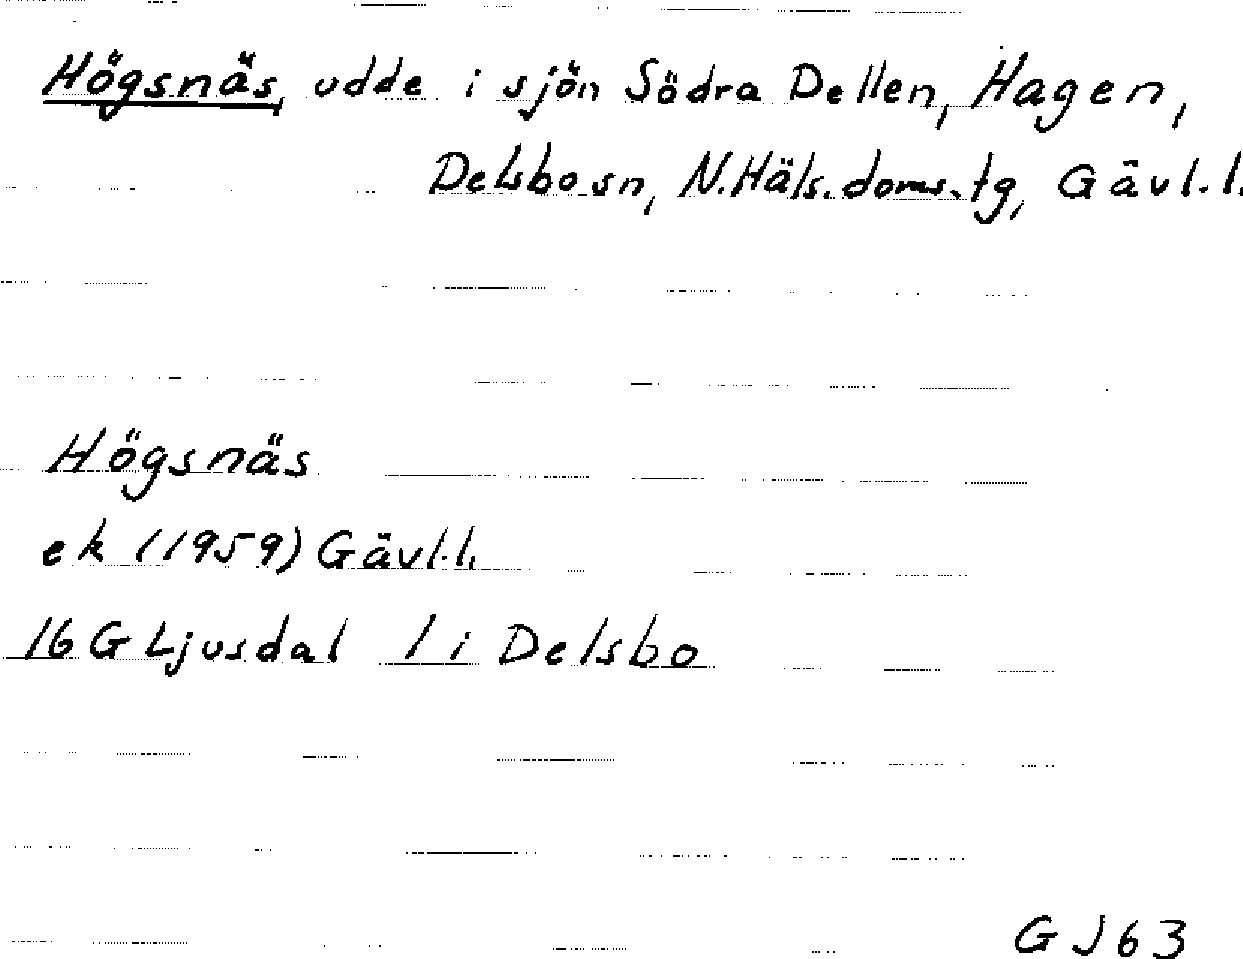 Högsnäs, udde i sjön Södra Dellen, Hagen,
Delsbo sn, N.Häls.doms.tg, Gävl.l.
Högsnäs
ek (1959) Gävl.l.
16 G Ljusdal 1 i Delsbo
GJ63